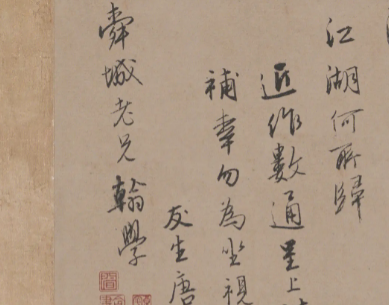 江湖何所歸
近作數通呈上
補幸勿為坐視
友生唐
舜城老兄翰學